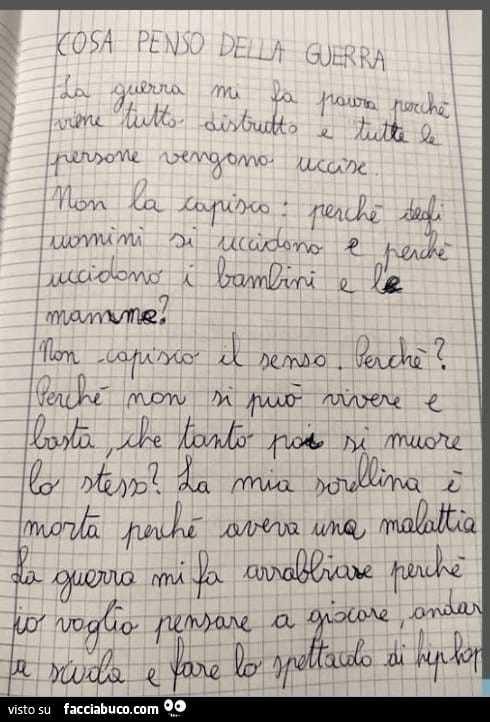 COSA PENSO DELLA GUERRA
La guerra mi fa paura perchè
viene tutto distrutto e tutte le
persone vengono uccise.
Non la capisco: perchè degli
uomini si uccidono e perchè
uccidono i bambini e le
mamme?
Non capisco il senso. Perchè?
Perchè non si può vivere e
basta, che tanto poi si muore
lo stesso? La mia sorellina è
morta perchè aveva una malattia
La guerra mi fa arrabbiare perchè
io voglio pensare a giocare, andar
a scuola e fare lo spettacolo di hip hop
visto su facciabuco.com